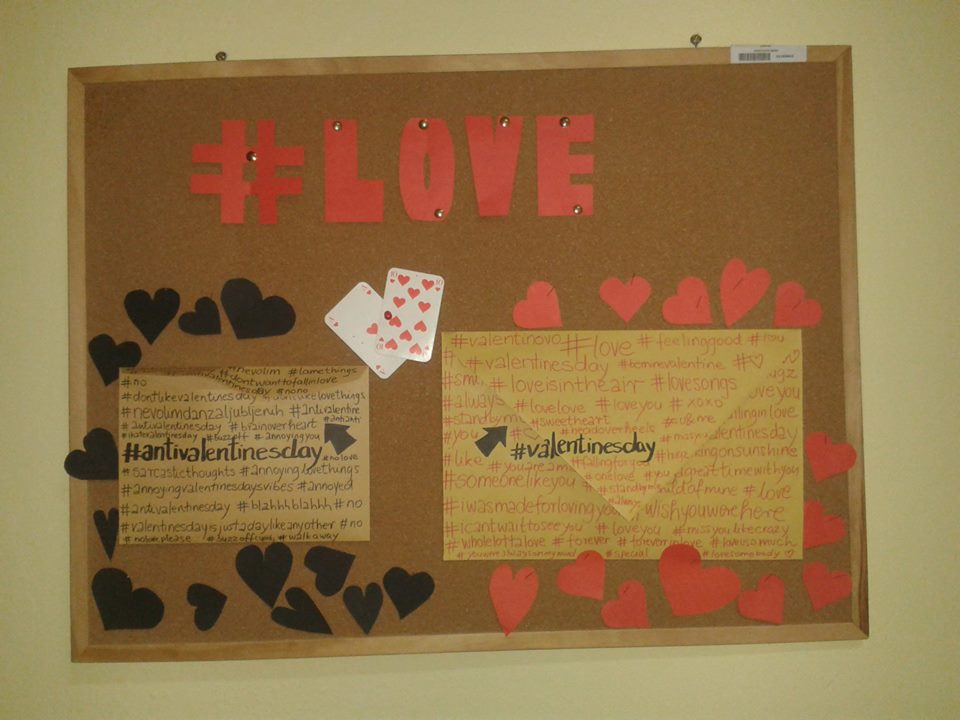 #LOVE
#nevolim #lamethings
#no #dontwanttofallinlove
#nono
#dontlikevalentinesday #dontlikelovethings
#nevolimdanzaljubljenih #antivalentine
#antivalentinesday #brainoverheart
#ihatevalentinesday #buzzoff #annoyingyou
#antivalentinesday #nolove
#sarcasticthoughts #annoyinglovethings
#annoyingvalentinesdaysvibes #annoyed
#antivalentinesday #blahhblahhh #no
#valentinesdayisjustadaylikeanyother #no
#noloveplease #buzzoffcupid #walkaway
10 10
#valentinovo #love #feelinggood #you
#valentinesday #beminevalentine #♡
#smi #loveisintheair #lovesongs
#always #lovelove #loveyou #xoxo loveyou
#standbyme #sweetheart #u&me fallinginlove
#you #headoverheels valentinesday
#valentinesday
#like #youaream #fallingforyou #huge
#someonelikeyou #onelove #you greattimewithyou
#standbyme #love
#always
#iwasmadeforlovingyou wishyouwerehere
#icantwaittoseeyou #loveyou #missyoulikecrazy
#wholelottalove #forever #foreverinlove #loveusomuch
#youwerealwaysonmymind #special #lovesomebody ♡